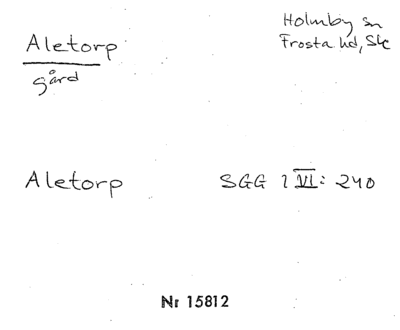 Aletorp
gård
Holmby sn
Frosta hd, Sk
Aletorp SGG 1 VI: 240
Nr 15812